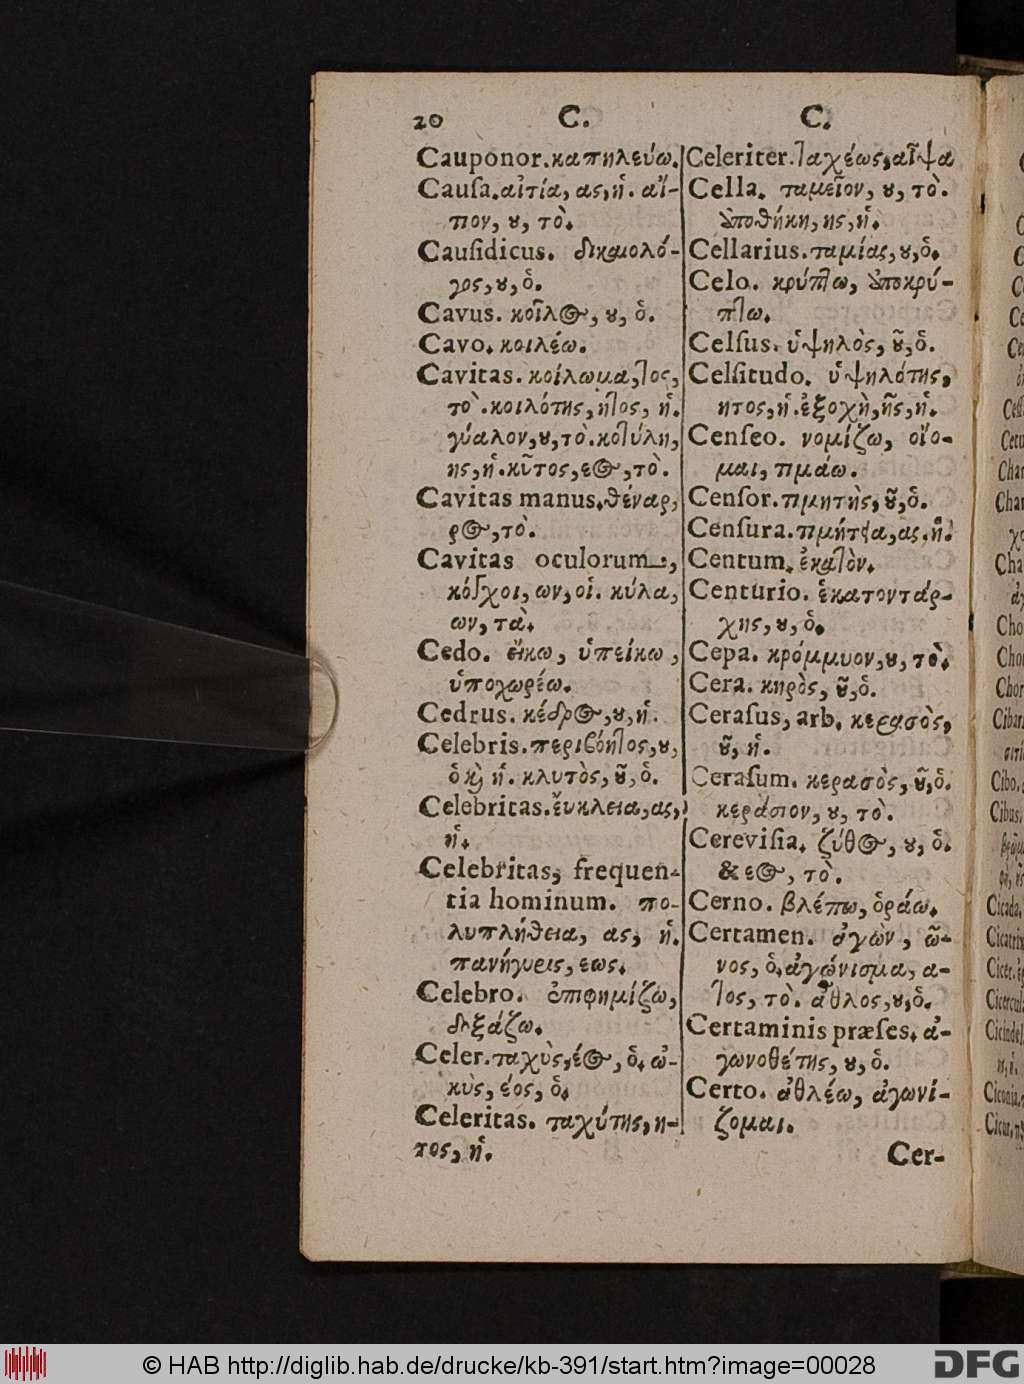 20 C. C.
Cauponor. καπηλεύω.
Cauſa. αἰτία, ας, ἡ. αἴ-
τιον, ου, τὸ.
Cauſidicus. δικαιολό-
γος, ου, ὁ.
Cavus. κοῖλος, ου, ὁ.
Cavo. κοιλέω.
Cavitas. κοίλωμα, τος,
τὸ. κοιλότης, ητος, ἡ.
γύαλον, ου, τὸ. κοτύλη,
ης, ἡ. κῦτος, εος, τὸ.
Cavitas manus. θέναρ,
ρος, τὸ.
Cavitas oculorum,
κόγχοι, ων, οἱ. κύλα,
ων, τὰ.
Cedo. εἴκω, ὑπείκω,
ὑποχωρέω.
Cedrus. κέδρος, ου, ἡ.
Celebris. περιβόητος, ου,
ὁ καὶ ἡ. κλυτὸς, οῦ, ὁ.
Celebritas. ἔυκλεια, ας,
ἡ.
Celebritas, frequen-
tia hominum. πο-
λυπλήθεια, ας, ἡ.
πανήγυρις, εως.
Celebro. ἐπιφημίζω,
δοξάζω.
Celer. ταχὺς, έος, ὁ. ὠ-
κὺς, έος, ὁ.
Celeritas. ταχύτης, η-
τος, ἡ.
Celeriter. ταχέως, αἶψα
Cella. ταμεῖον, ου, τὸ.
ἀποθήκη, ης, ἡ.
Cellarius. ταμίας, ου, ὁ.
Celo. κρύπτω, ἀποκρύ-
πτω.
Celſus. ὑψηλὸς, οῦ, ὁ.
Celſitudo. ὑψηλότης,
ητος, ἡ. ἐξοχὴ, ῆς, ἡ.
Cenſeo. νομίζω, οἴο-
μαι, τιμάω.
Cenſor. τιμητὴς, οῦ, ὁ.
Cenſura. τιμήτεια, ας, ἡ.
Centum. ἑκατὸν.
Centurio. ἑκατοντάρ-
χης, ου, ὁ.
Cepa. κρόμμυον, ου, τὸ.
Cera. κηρὸς, οῦ, ὁ.
Ceraſus, arb. κερασὸς,
οῦ, ἡ.
Ceraſum. κερασὸς, οῦ, ὁ.
κεράσιον, ου, τὸ.
Cereviſia. ζύθος, ου, ὁ.
& εος, τὸ.
Cerno. βλέπω, ὁράω.
Certamen. ἀγὼν, ῶ-
νος, ὁ. ἀγώνισμα, α-
τος, τὸ. ἆθλος, ου, ὁ.
Certaminis præſes. ἀ-
γωνοθέτης, ου, ὁ.
Certo. ἀθλέω, ἀγωνί-
ζομαι.
Cer-
© HAB http://diglib.hab.de/drucke/kb-391/start.htm?image=00028
DFG